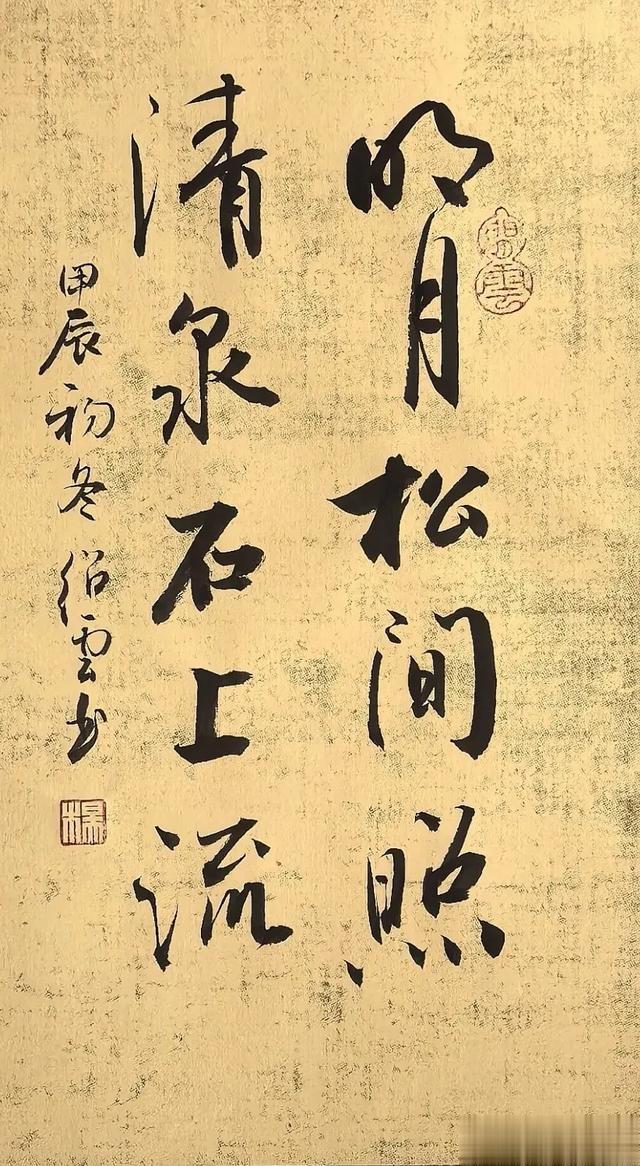 明月松间照
清泉石上流
甲辰初冬绍雲书